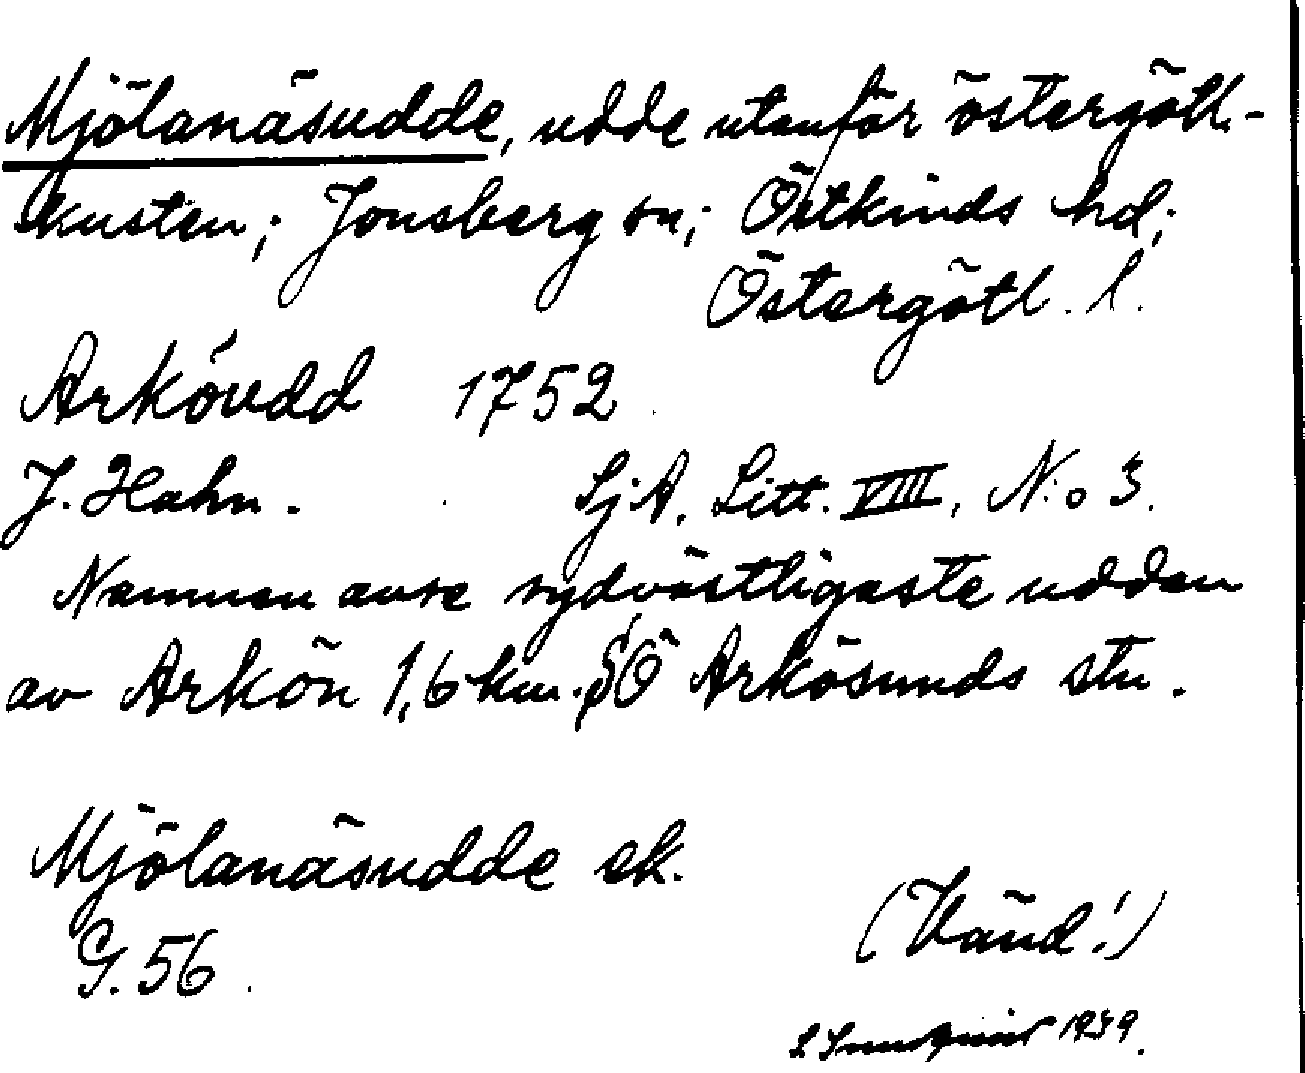 Mjölanäsudde, udde utanför östergötl.-
kusten; Jonsberg sn; Östkinds hd;
Östergötl. l.
Arköudd 1752.
J. Hahn. SjA. Litt. VIII, N:o 3.
Namnen avse sydvästligaste udden
av Arkön 1,6 km. SO Arkösunds stn.
Mjölanäsudde ek.
G. 56.
(Vänd!)
1939.